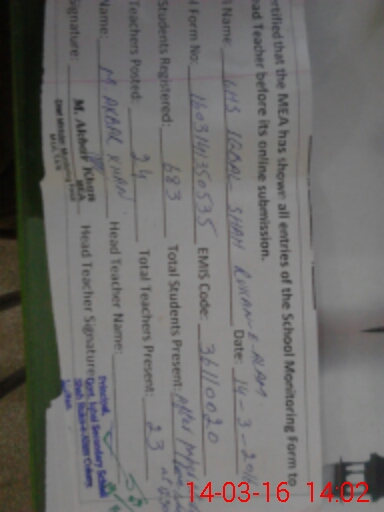 ertified that the MEA has shown all entries of the School Monitoring Form to
ead Teacher before its online submission.
l Name GHS IQBAL SHAH RUKAN-E-ALAM
Date: 14-3-201
l Form No: 1603141350535 EMIS Code: 36110020
Students Registered: 683 Total Students Present:
Teachers Posted: 24 Total Teachers Present: 23
Name: M. AKBAR KHAN Head Teacher Name:
Signature: Head Teacher Signature
M. Akbar Khan
MEA
Principal,
Govt. Iqbal Secondary School
Shah Rukn-e-Alam Colony
14-03-16 14:02